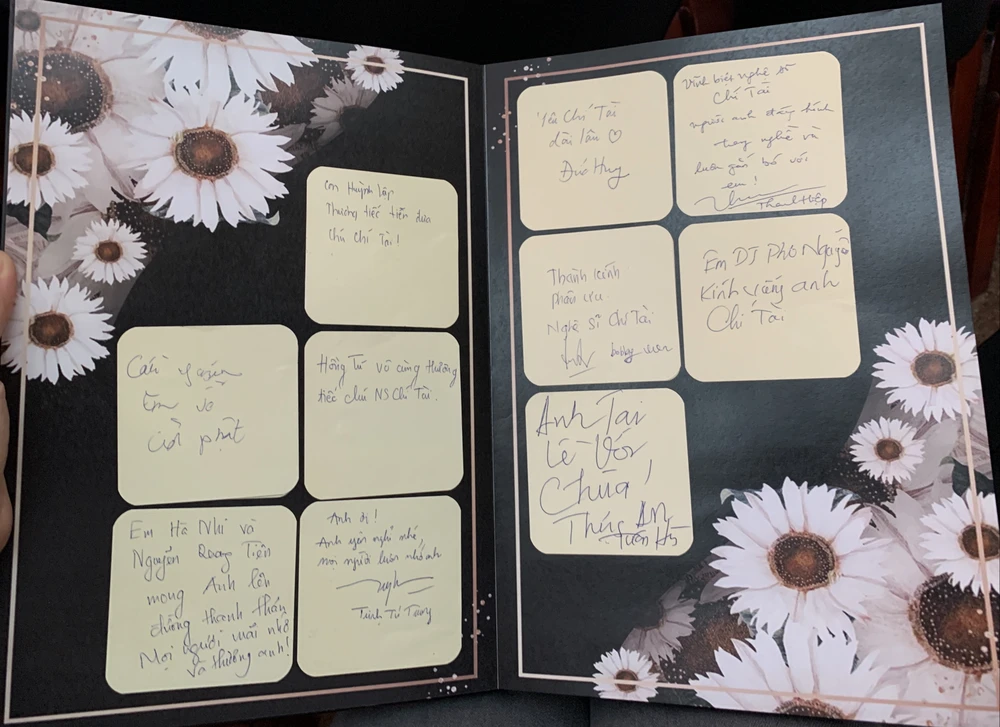 Em Huỳnh Lập
Thương tiếc tiễn đưa
Chú Chí Tài!
Em về
cõi phật
Hồng Tú vô cùng thương
tiếc chú NS Chí Tài.
Em Hà Nhi và
Nguyễn Quang Tiến
mong Anh lên
đường thanh thản
Mọi người mãi nhớ
và thương anh!
Anh ơi!
Anh yên nghỉ nhé,
mọi người luôn nhớ anh
Trịnh Tú Trung
Yêu Chí Tài
dài lâu
Đức Huy
Vĩnh biệt nghệ sĩ
Chí Tài
người anh đáng kính
trong nghề và
luôn gắn bó với
em!
Thanh Hiệp
Thành kính
phân ưu
Nghệ Sĩ Chí Tài
Em DJ Phong Nguyễn
Kính viếng anh
Chí Tài
Anh Tài
Về Với
Chúa!
Thúy An